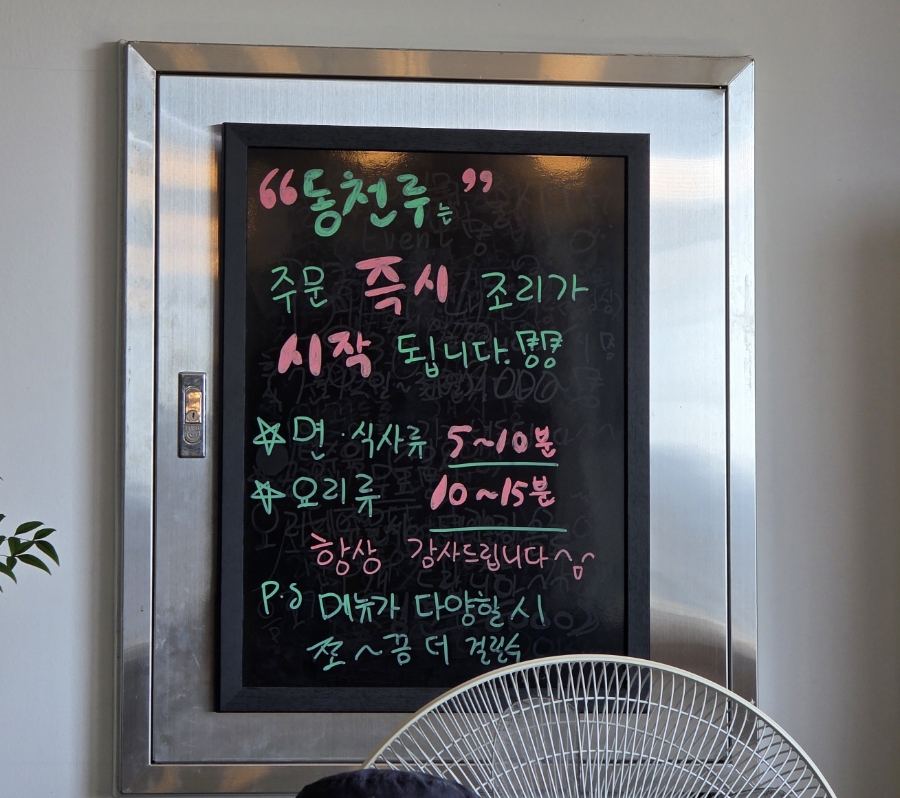 “동천루는”
주문 즉시 조리가
시작 됩니다.
☆ 면·식사류 5~10분
☆ 요리류 10~15분
항상 감사드립니다^^
P.S 메뉴가 다양할 시
쪼~끔 더 걸릴수